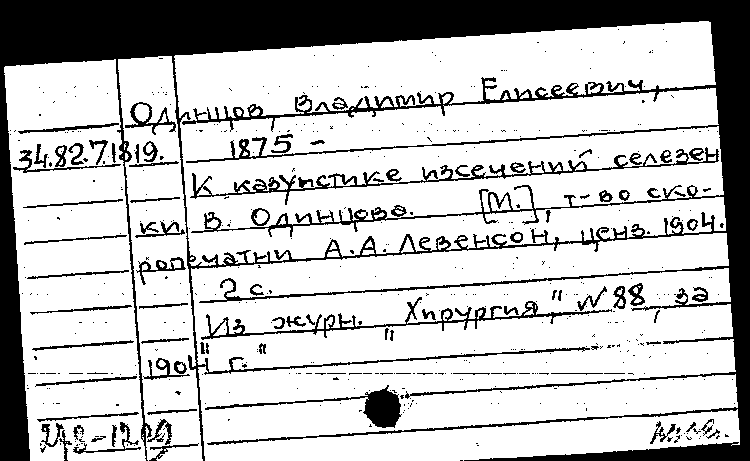 Одинцов, Владимир Елисеевич,
34.82.7.1819. 1875 –
К казуистике изсечений селезен
ки. В. Одинцова. [М.], т-во ско-
ропечатни А.А. Левенсон, ценз. 1904.
2 с.
Из журн. „Хирургия", № 88, за
1904 „г."
278-1209